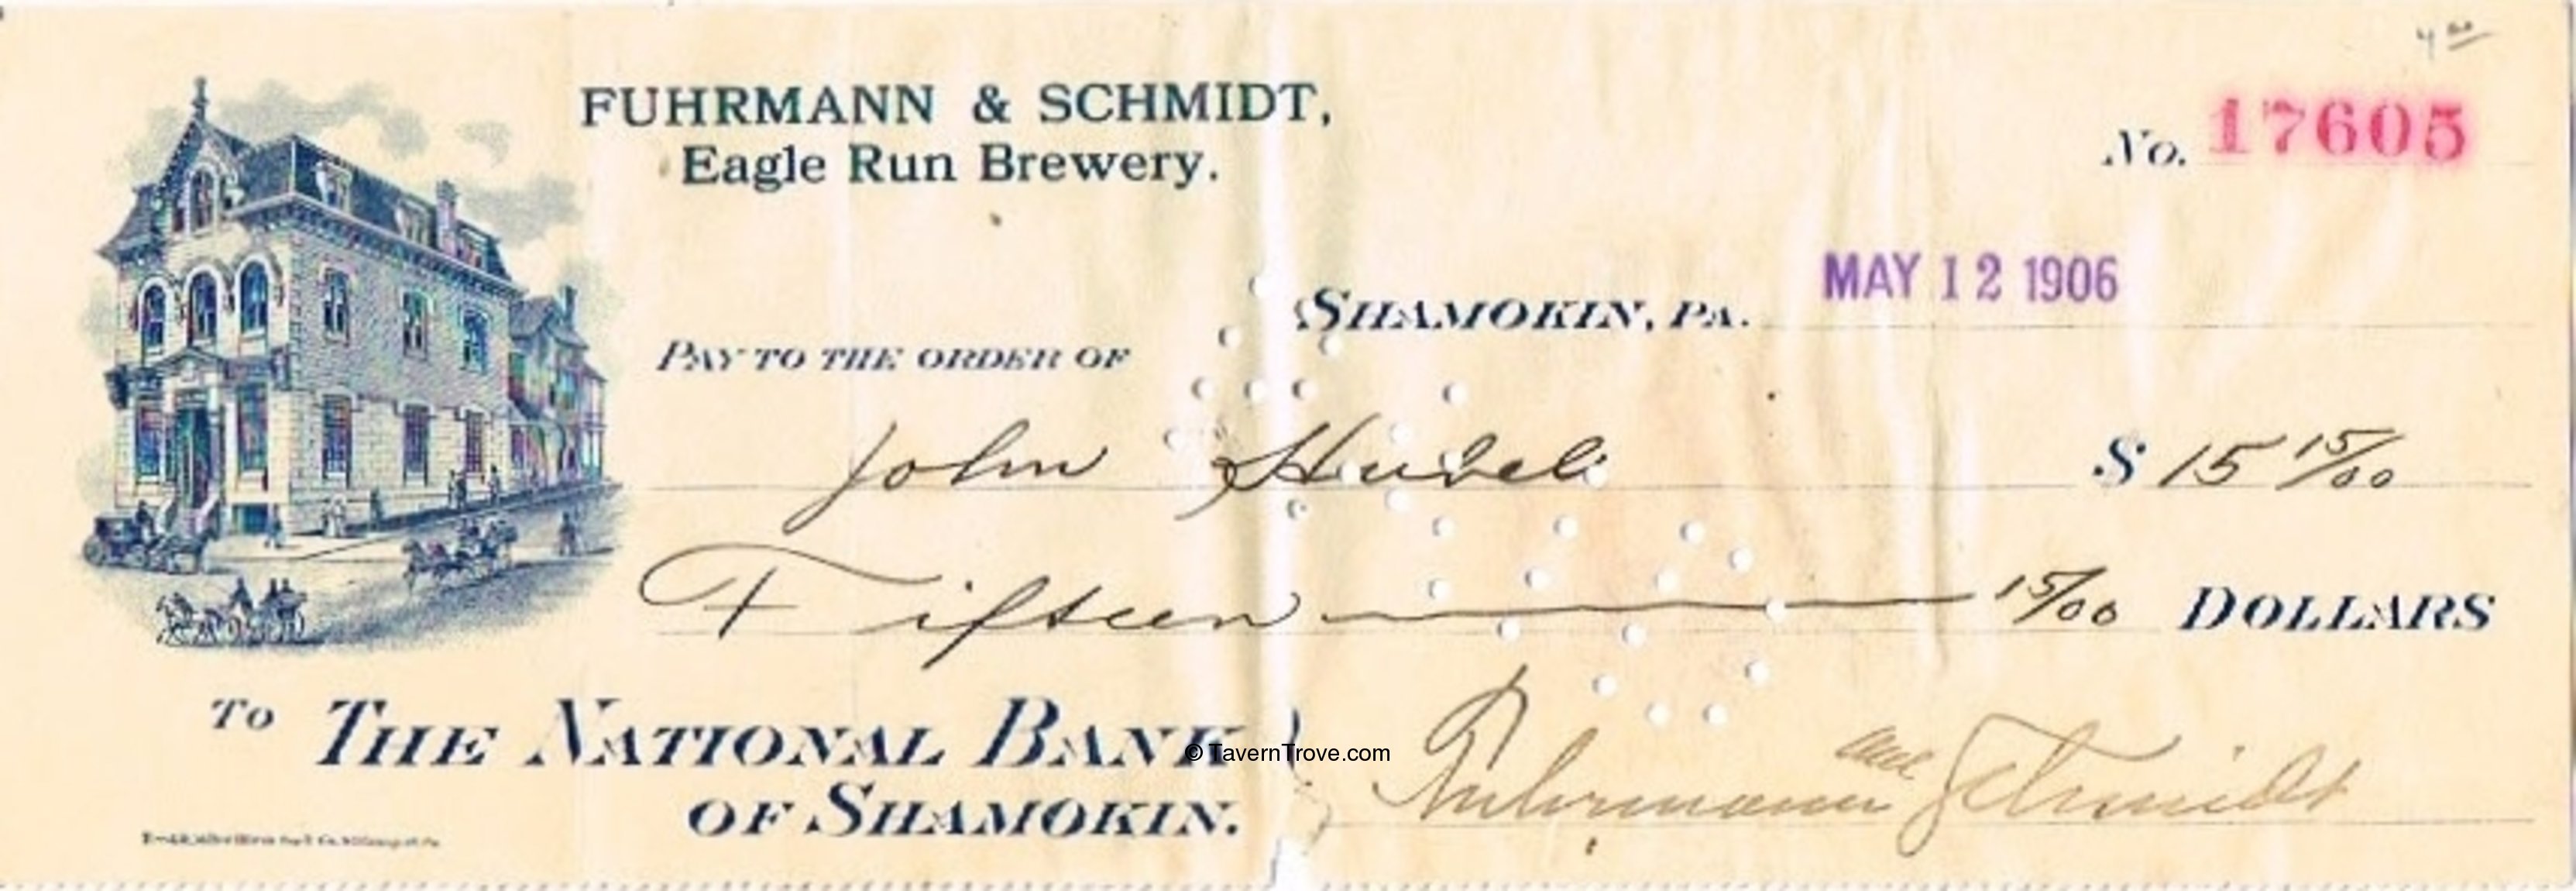 FUHRMANN & SCHMIDT,
Eagle Run Brewery.
No. 17605
SHAMOKIN, PA. MAY 12 1906
PAY TO THE ORDER OF
John
$ 15 15/00
Fifteen 15/00 DOLLARS
To THE NATIONAL BANK
OF SHAMOKIN.
© TavernTrove.com
Fuhrmann and Schmidt